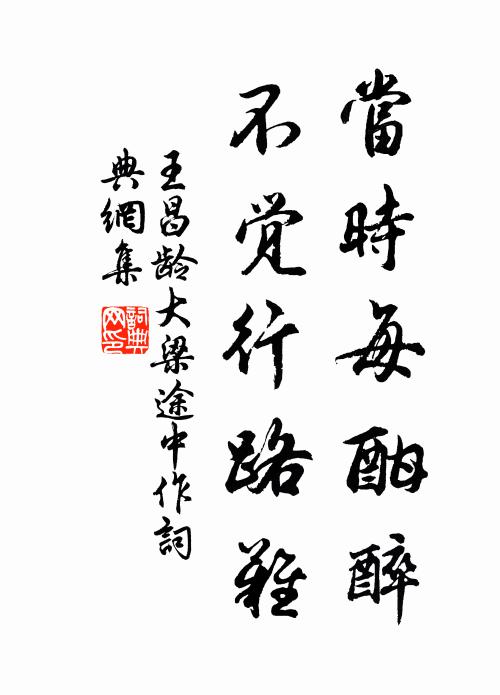 當時每酣醉
不觉行路難
王昌龄大梁途中作詞
典網集
詞典
网印